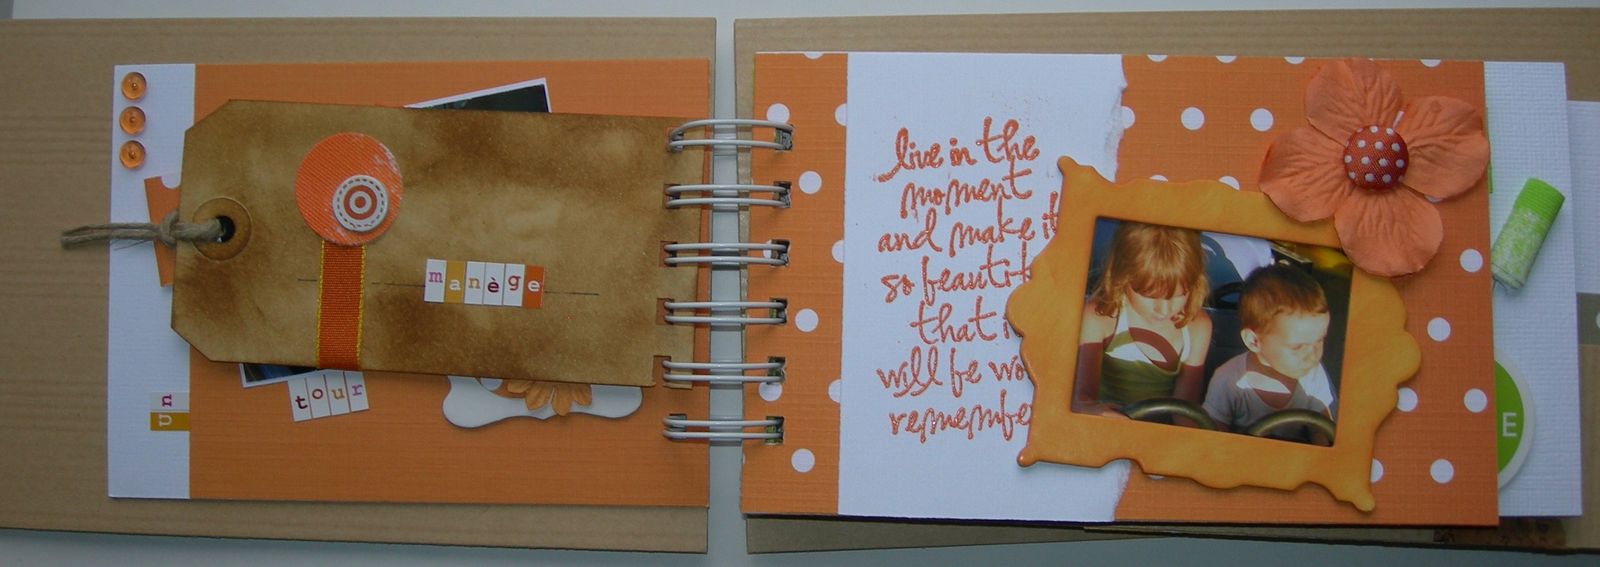 manège
un
tour
live in the
moment
and make it
so beautif
that i
will be wo
remembe
E